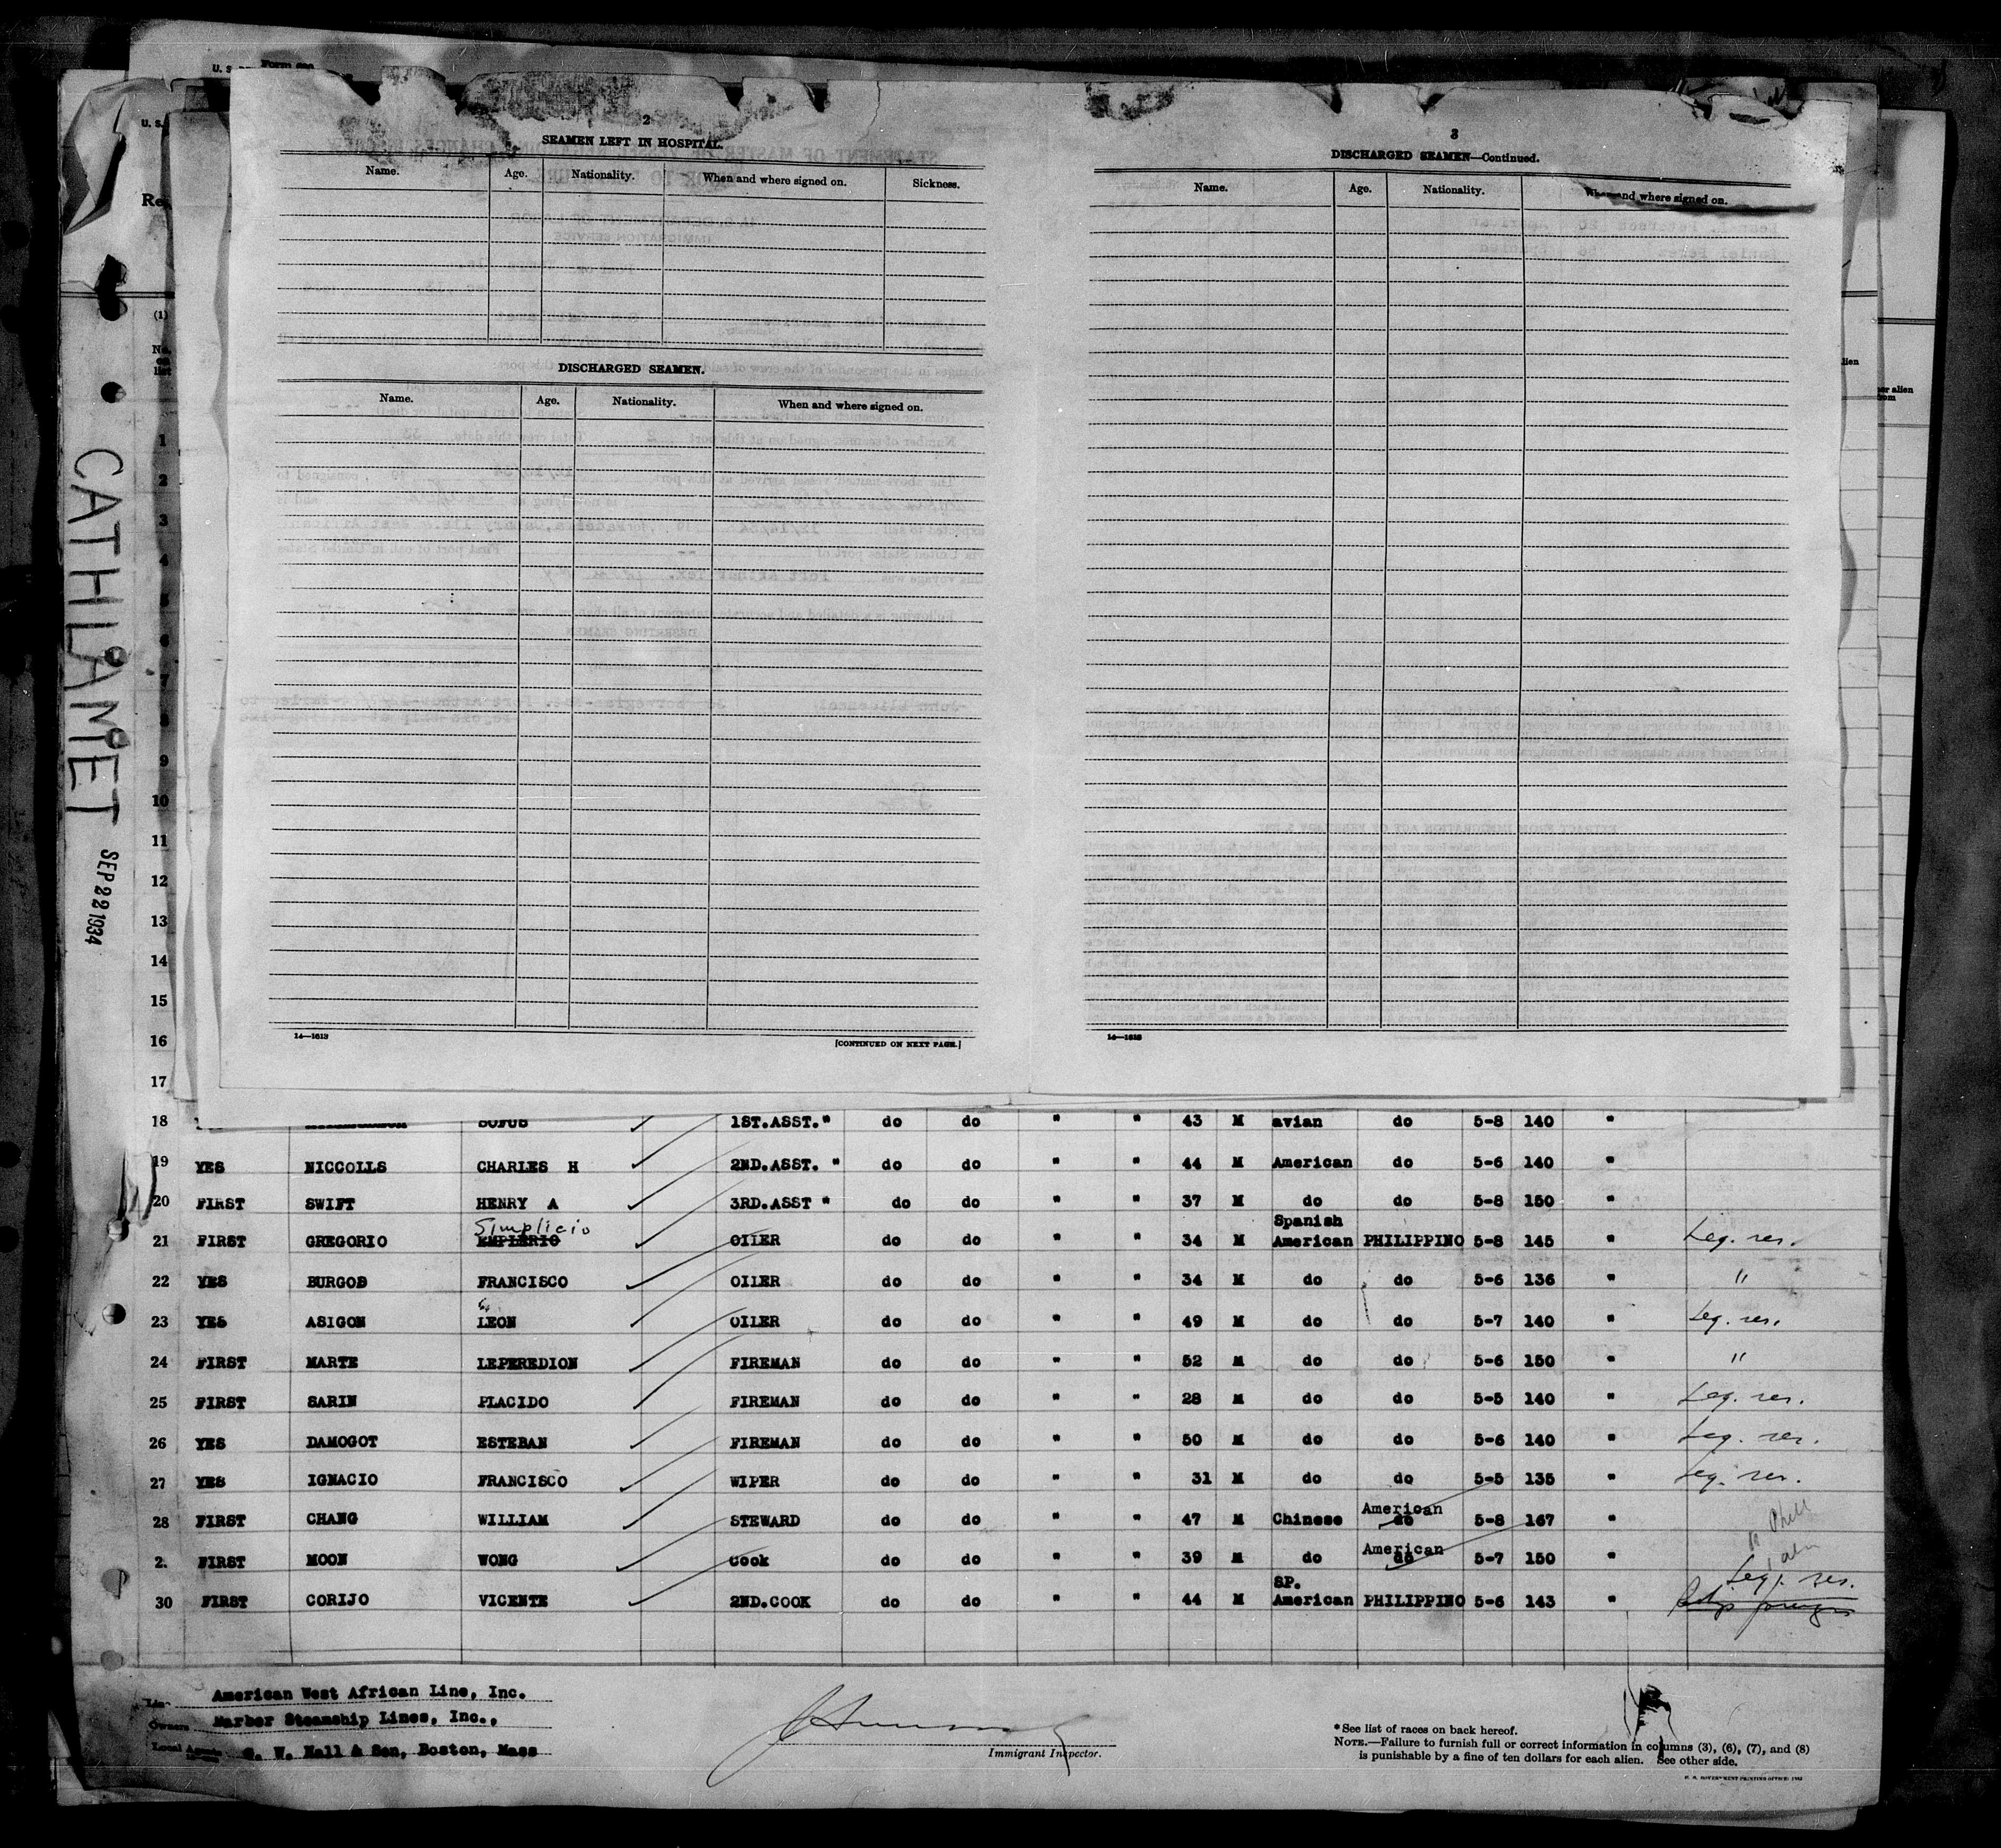 2
SEAMEN LEFT IN HOSPITAL.
Name. Age. Nationality. When and where signed on. Sickness.
DISCHARGED SEAMEN.
Name. Age. Nationality. When and where signed on.
14—1613 [CONTINUED ON NEXT PAGE.]
3
DISCHARGED SEAMEN—Continued.
Name. Age. Nationality. When and where signed on.
14—1613
CATHLAMET SEP 22 1934
U. S.
(1)
No.
on
list
1
2
3
4
5
6
7
8
9
10
11
12
13
14
15
16
17
18 1ST.ASST." do do " " 43 M avian do 5-8 140 "
19 YES NICCOLLS CHARLES H 2ND.ASST. " do do " " 44 M American do 5-6 140 "
20 FIRST SWIFT HENRY A 3RD.ASST " do do " " 37 M do do 5-8 150 "
Simplicio Spanish
21 FIRST GREGORIO EMPLERIO OILER do do " " 34 M American PHILIPPINO 5-8 145 " Leg. res.
22 YES BURGOS FRANCISCO OILER do do " " 34 M do do 5-6 136 " "
23 YES ASIGON LEON OILER do do " " 49 M do do 5-7 140 " Leg. res.
24 FIRST MARTE LEPEREDION FIREMAN do do " " 52 M do do 5-6 150 " "
25 FIRST SARIN PLACIDO FIREMAN do do " " 28 M do do 5-5 140 " Leg. res.
26 YES DAMOGOT ESTEBAN FIREMAN do do " " 50 M do do 5-6 140 " Leg. res.
27 YES IGNACIO FRANCISCO WIPER do do " " 31 M do do 5-5 135 " Leg. res.
American
28 FIRST CHANG WILLIAM STEWARD do do " " 47 M Chinese do 5-8 167 "
American
2. FIRST MOON WONG Cook do do " " 39 M do do 5-7 150 "
SP. Leg. res.
30 FIRST CORIJO VICENTE 2ND.COOK do do " " 44 M American PHILIPPINO 5-6 143 "
American West African Line, Inc.
Owners Barber Steamship Lines, Inc.,
Local Agents C. W. Hall & Son, Boston, Mass
Immigrant Inspector.
*See list of races on back hereof.
NOTE.—Failure to furnish full or correct information in columns (3), (6), (7), and (8)
is punishable by a fine of ten dollars for each alien. See other side.